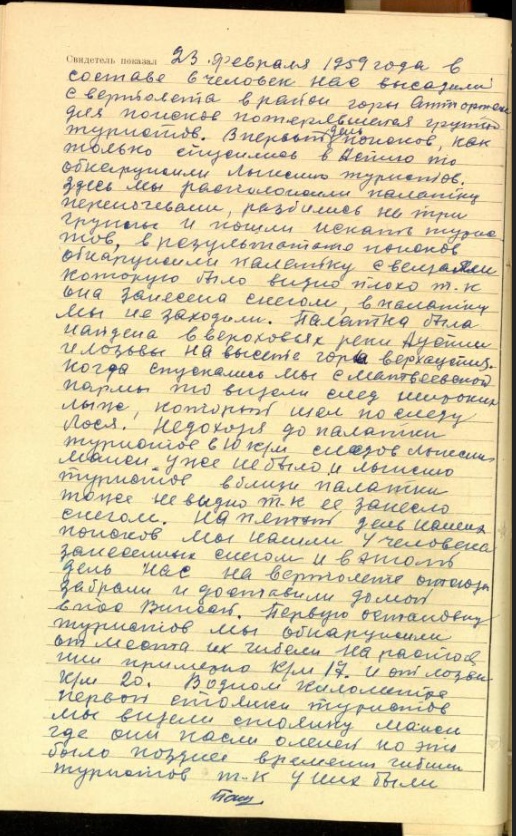 Свидетель показал 23 февраля 1959 года в
составе 6 человек нас высадили
с вертолета в район горы Отортен
для поисков потерявшейся группы
туристов. В первый день поисков, как
только спустились в Аспию то
обнаружили лыжню туристов.
Здесь мы расположили палатку
переночевали, разбились на три
группы и пошли искать турис
тов, в результате поисков
обнаружили палатку с вещами
которую было видно плохо т.к
она занесена снегом, в палатку
мы не заходили. Палатка была
найдена в верховьях реки Ауспии
и Лозьвы на высоте гора верхауспия.
Когда спускались мы с матвеевской
пармы то видели след широких
лыж, который шел по следу
Лося. Не доходя до палатки
туристов в 10 км следов лыжни
манси уже не было, и лыжню
туристов вблизи палатки
тоже не видно т.к ее занесло
снегом. На пятый день наших
поисков мы нашли 4 человека
занесенных снегом и в этот
день нас на вертолете отсюда
забрали и доставили домой
в пос Вижай. Первую остановку
туристов мы обнаружили
от места их гибели на растоя
нии примерно км 17. и от лозвы
км 20. В одном километре
первой стоянки туристов
мы видели стоянку манси
где они пасли оленей но это
было позднее времени гибели
туристов т.к у них были